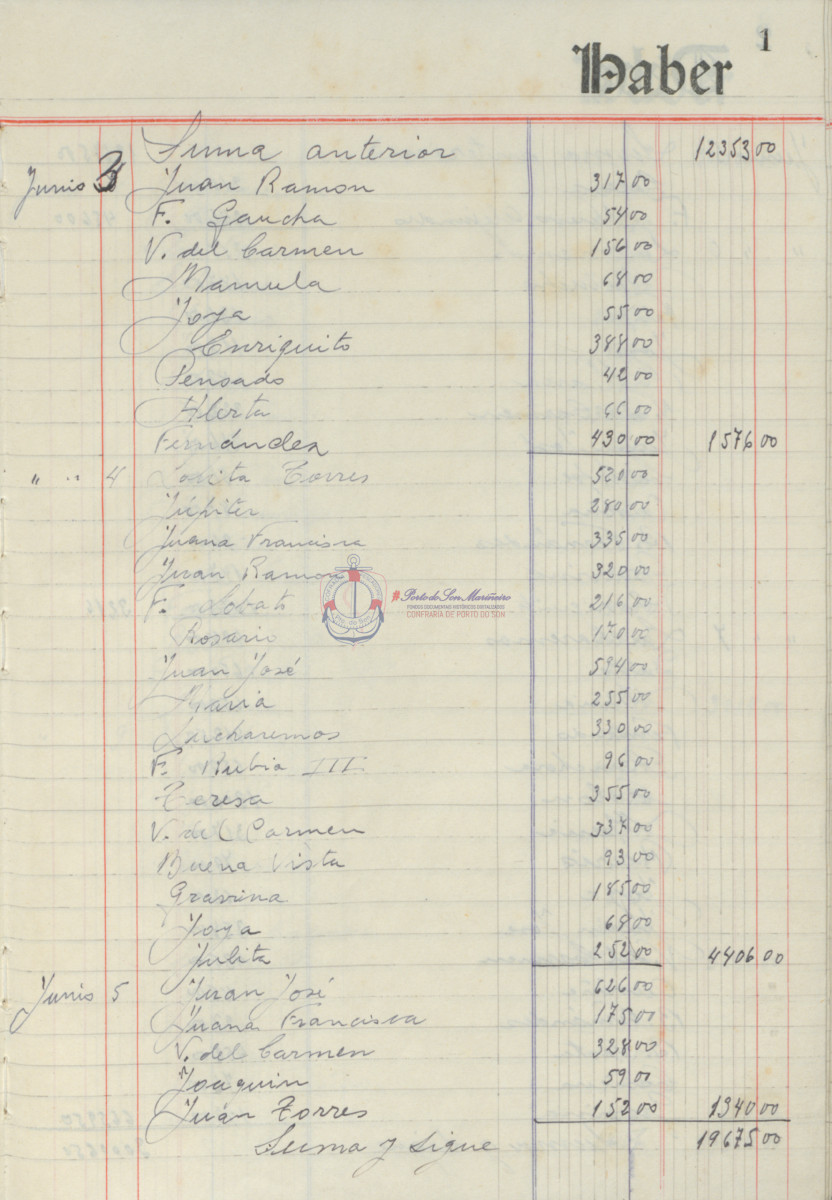 1
Haber
Suma anterior 12353 00
Junio 3 Juan Ramon 317 00
F. Gaucha 54 00
V. del Carmen 156 00
Mamula 68 00
Joya 55 00
Enriquito 388 00
Pensado 42 00
Alerta 66 00
Fernández 430 00 1576 00
" " 4 Lolita Torres 520 00
Júpiter 280 00
Juana Francisca 335 00
Juan Ramon 320 00
F. Lobato 216 00
Rosario 170 00
Juan José 594 00
Maria 255 00
Lucharemos 330 00
F. Rubia III 96 00
Teresa 355 00
V. del Carmen 337 00
Buena Vista 93 00
Gravina 185 00
Joya 68 00
Julita 252 00 4406 00
Junio 5 Juan José 626 00
Juana Francisca 175 00
V. del Carmen 328 00
Joaquin 59 00
Juán Torres 152 00 1340 00
Suma y sigue 19675 00
Porto do Son Mariñeiro
FONDOS DOCUMENTAIS HISTÓRICOS DIXITALIZADOS
CONFRARÍA DE PORTO DO SON